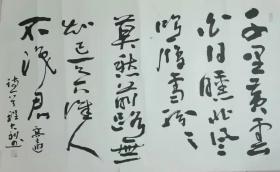 千里黃雲
白日曛北風
吹雁雪紛紛
莫愁前路無
知己天下誰人
不識君 高適